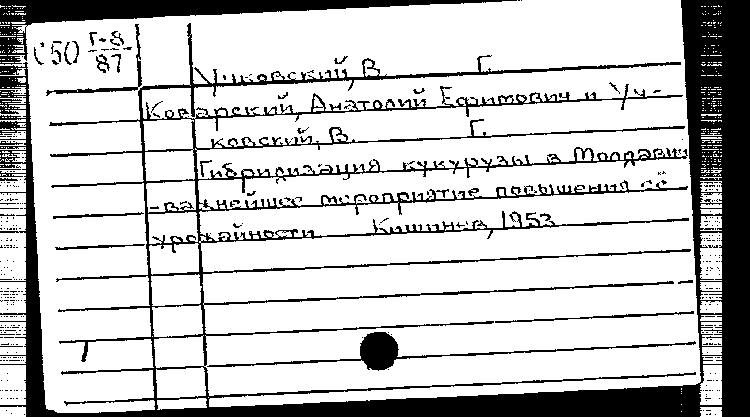 С50 Г-8
87
Учковский, В. Г.
Коварский, Анатолий Ефимович и Уч-
ковский, В. Г.
Гибридизация кукурузы в Молдавии
- важнейшее мероприятие повышения её
урожайности Кишинев, 1953